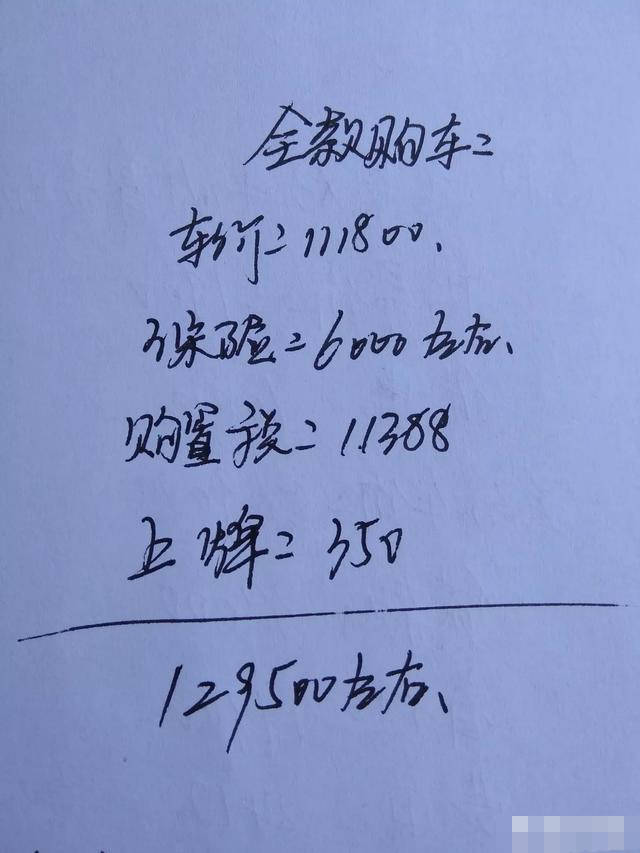 全款购车:
车价:111800、
保险:6000左右、
购置税:11388
上牌:350
129500左右、